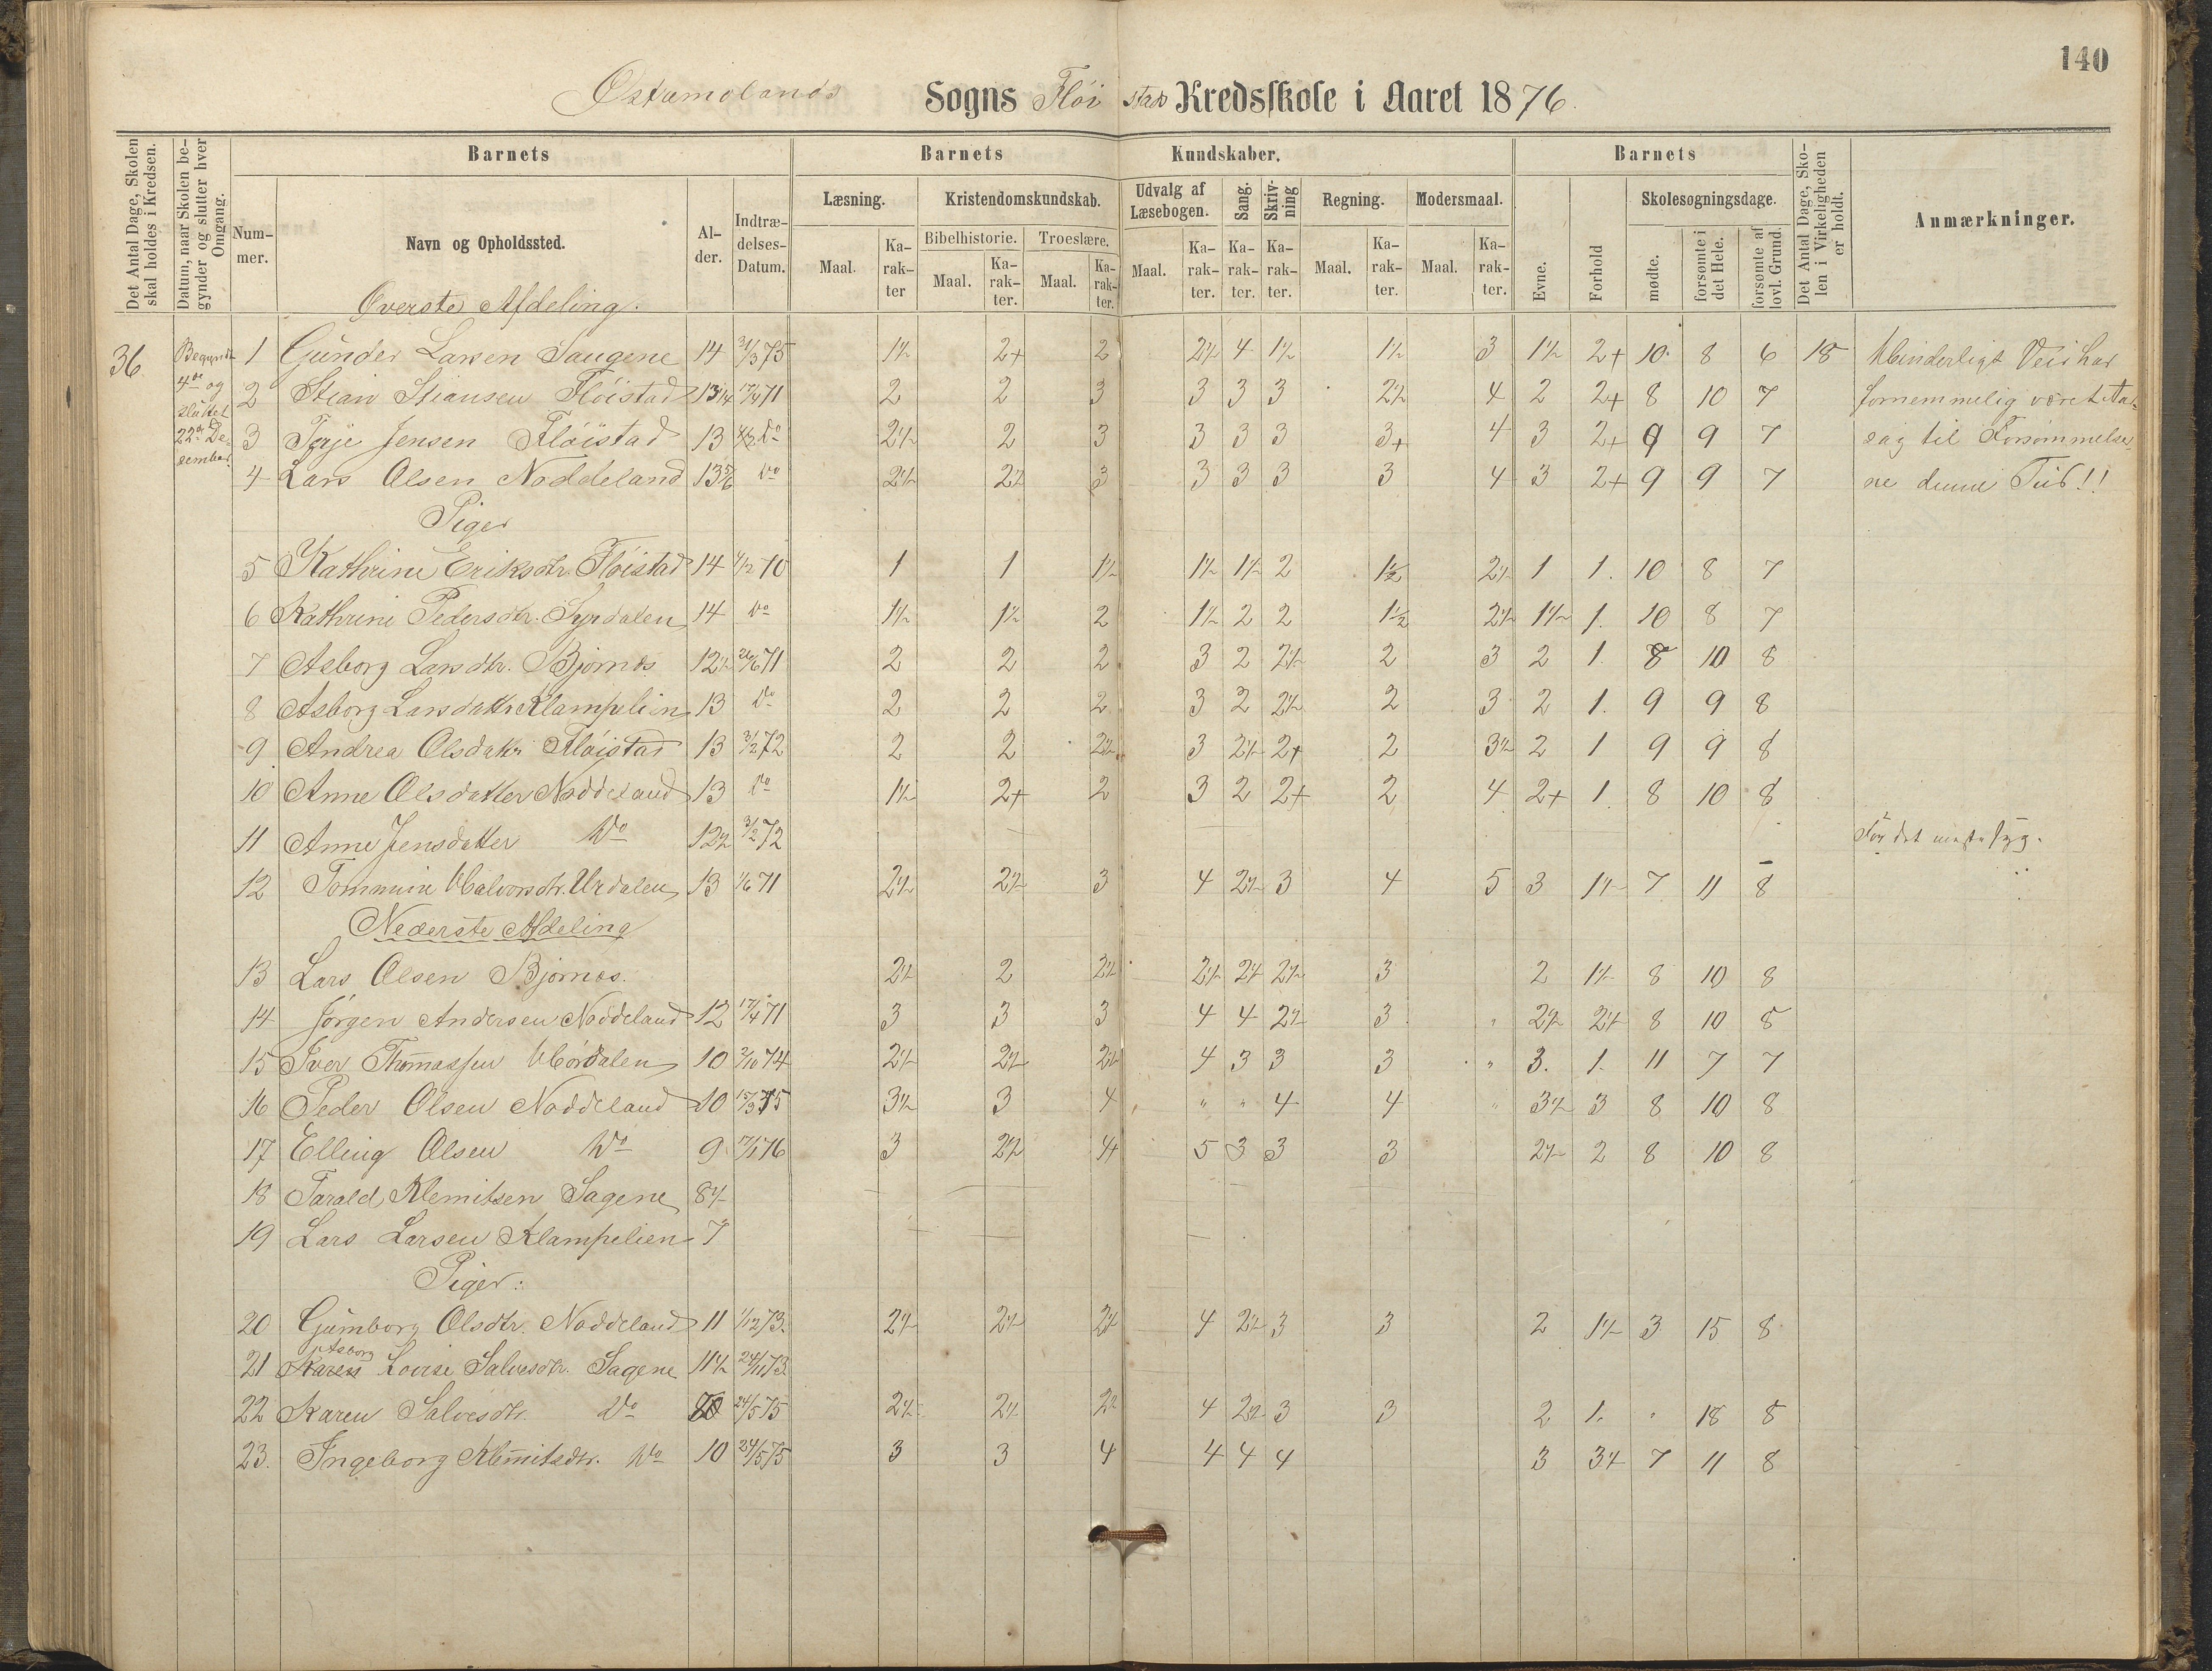 140
Østamolands Sogns Fløistad Kredsskole i Aaret 1876.
Det Antal Dage, Skolen skal holdes i Kredsen.
Datum, naar Skolen begynder og slutter hver Omgang.
Barnets
Nummer.
Navn og Opholdssted.
Alder.
Indtrædelses-Datum.
Barnets Kundskaber.
Læsning.
Kristendomskundskab.
Udvalg af Læsebogen.
Sang.
Skrivning
Regning.
Modersmaal.
Bibelhistorie.
Troeslære.
Maal. Karakter Maal. Karakter. Maal. Karakter. Maal. Karakter. Karakter. Karakter. Maal. Karakter. Maal. Karakter.
Barnets
Evne.
Forhold
Skolesøgningsdage.
mødte.
forsømte i det Hele.
forsømte af lovl. Grund.
Det Antal Dage, Skolen i Virkeligheden er holdt.
Anmærkninger.
Øverste Afdeling.
36
Begyndt
4de og
sluttet
22de De-
sember.
1 Gunder Larsen Saugene 14 31/3 75 1½ 2+ 2 2½ 4 1½ 1½ 3 1½ 2+ 10 8 6 18 Hinderligt Veir har
2 Stian Stiansen Fløistad 13¼ 17/4 71 2 2 3 3 3 3 2½ 4 2 2+ 8 10 7 fornemmelig været Aar-
3 Terje Jensen Fløistad 13 Do 2½ 2 3 3 3 3 3+ 4 3 2+ 9 9 7 sag til Forsømmelser-
4 Lars Olsen Noddeland 13 5/6 Do 2½ 2½ 3 3 3 3 3 4 3 2+ 9 9 7 ne denne Tid!!
Piger
5 Kathrine Eriksdtr. Fløistad 14 1/2 70 1 1 1½ 1½ 1½ 2 1½ 2½ 1 1. 10 8 7
6 Kathrine Pedersdtr. Syrdalen 14 Do 1½ 1½ 2 1½ 2 2 1½ 2½ 1½ 1. 10 8 7
7 Asborg Larsdtr. Bjornes 12½ 26/6 71 2 2 2 3 2 2½ 2 3 2 1. 8 10 8
8 Asborg Larsdattr Klampelien 13 Do 2 2 2 3 2 2½ 2 3 2 1. 9 9 8
9 Andrea Olsdatr. Fløistad 13 3/2 72 2 2 2½ 3 2½ 2+ 2 3½ 2 1 9 9 8
10 Anne Olsdatter Noddeland 13 Do 1½ 2+ 2 3 2 2+ 2 4 2+ 1. 8 10 8
11 Anne Jensdatter Do 12½ 3/2 72 For det meste syg.
12 Tommine Halvorsdtr. Urdalen 13 1/6 71 2½ 2½ 3 4 2½ 3 4 5 3 1½ 7 11 8
Nederste Afdeling
13 Lars Olsen Bjornes. 2½ 2 2½ 2½ 2½ 2½ 3 2 1½ 8 10 8
14 Jørgen Andersen Noddeland 12 17/4 71 3 3 3 4 4 2½ 3 " 2½ 2½ 8 10 8
15 Iver Thomassen Hördalen 10 3/10 74 2½ 2½ 2½ 4 3 3 3 " 3. 1. 11 7 7
16 Peder Olsen Noddeland 10 15/3 75 3½ 3 4 " " 4 4 " 3½ 3 8 10 8
17 Elling Olsen Do 9 17/1 76 3 2½ 4 5 3 3 3 2½ 2 8 10 8
18 Tarald Klemitsen Sagene 8½
19 Lars Larsen Klampelien 7
Piger:
20 Gumborg Olsdtr. Noddeland 11 1/12 73. 2½ 2½ 2½ 4 2½ 3 3 2 1½ 3 15 8
Asborg
21 Karen Lovise Salvesdtr. Sagene 11½ 24/11 73
22 Karen Salvesdtr. Do 24/5 75 2½ 2½ 2½ 4 2½ 3 3 2 1. " 18 8
23. Ingeborg Klemitsdtr. Do 10 24/5 75 3 3 4 4 4 4 3 3½ 7 11 8